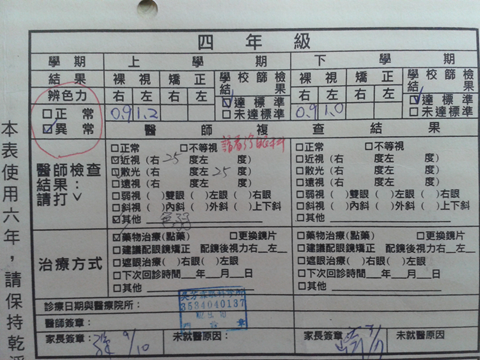 四年級
學期 上 學期 下 學期
結果 裸視 矯正 學校師檢結果 裸視 矯正 學校師檢結果
辨色力 右 左 右 左 ☑達標準 右 左 右 左 ☑達標準
□正常 0.9 1.2 □未達標準 0.9 1.0 □未達標準
☑異常 醫師複查結果
醫師檢查結果：請打∨
□正常 □不等視 □正常 □不等視
☑近視(右25度左 度) □近視(右 度左 度)
☑散光(右 度左25度) □散光(右 度左 度)
□遠視(右 度左 度) □遠視(右 度左 度)
□弱視(□雙眼 □左眼 □右眼 □弱視(□雙眼 □左眼 □右眼
□斜視(□內斜 □外斜 □上下斜 □斜視(□內斜 □外斜 □上下斜
☑其他 色弱 □其他
治療方式
□藥物治療(點藥) □更換鏡片 □藥物治療(點藥) □更換鏡片
□建議配眼鏡矯正 配鏡後視力右__左__ □建議配眼鏡矯正 配鏡後視力右__左__
□遮眼治療(□右眼 □左眼) □遮眼治療(□右眼 □左眼)
□下次回診時間__年__月__日 □下次回診時間__年__月__日
□其他 □其他
診療日期與醫療院所：
3534040137
醫師簽章：
家長簽章： 9/10 未就醫原因： 家長簽章： 未就醫原因：
本表使用六年，請保持乾淨